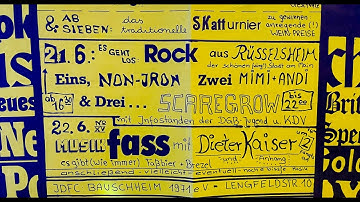 & AB SIEBEN: das traditionelle SKattturnier zu gewinnen anregende (!) WEIN-PREISE
21.6.: ES GEHT LOS: ROCK aus RÜSSELSHEIM
der schönen Stadt am Main
Eins, NON-IRON Zwei MiMi+ANDi
ab 16 30 & Drei... SCAREGROW bis 22 00
mit Infoständen der DGB-Jugend u. KDV
22.6. MUSIK fass mit Dieter Kaiser
es gibt (wie immer) Faßbier + Brezel und Anhang
anschließend vielleicht eventuell noch 'ne Musik
JDFC BAUSCHHEIM 1971 e.V. - LENGFELDSTR 10
ok
us
eues
Ne
Po
b
Brit
Spe
Gold